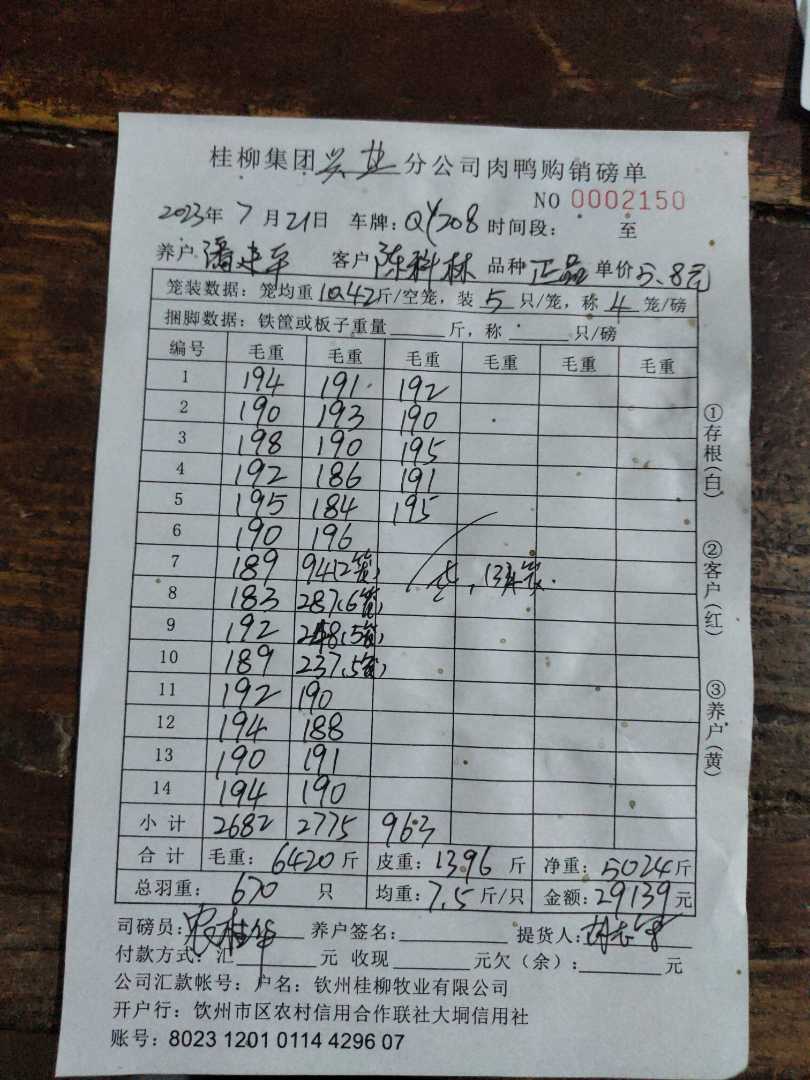 桂柳集团兴业分公司肉鸭购销磅单
NO 0002150
2023年7月21日 车牌:QY208 时间段: 至
养户潘建平 客户陈科林 品种正品 单价5.8元
笼装数据:笼均重10.42斤/空笼,装5只/笼,称4笼/磅
捆脚数据:铁筐或板子重量 斤,称 只/磅
编号 毛重 毛重 毛重 毛重 毛重 毛重
1 194 191 192
2 190 193 190
3 198 190 195
4 192 186 191
5 195 184 195
6 190 196
7 189 94(2笼)
8 183 287(6笼)
9 192 248(5笼)
10 189 237(5笼)
11 192 190
12 194 188
13 190 191
14 194 190
小计 2682 2775 963
合计 毛重:6420斤 皮重:1396斤 净重:5024斤
总羽重:670只 均重:7.5斤/只 金额:29139元
司磅员:农桂华 养户签名: 提货人:
付款方式:汇 元 收现 元欠(余): 元
公司汇款帐号:户名:钦州桂柳牧业有限公司
开户行:钦州市区农村信用合作联社大垌信用社
账号:8023 1201 0114 4296 07
①存根(白)
②客户(红)
③养户(黄)